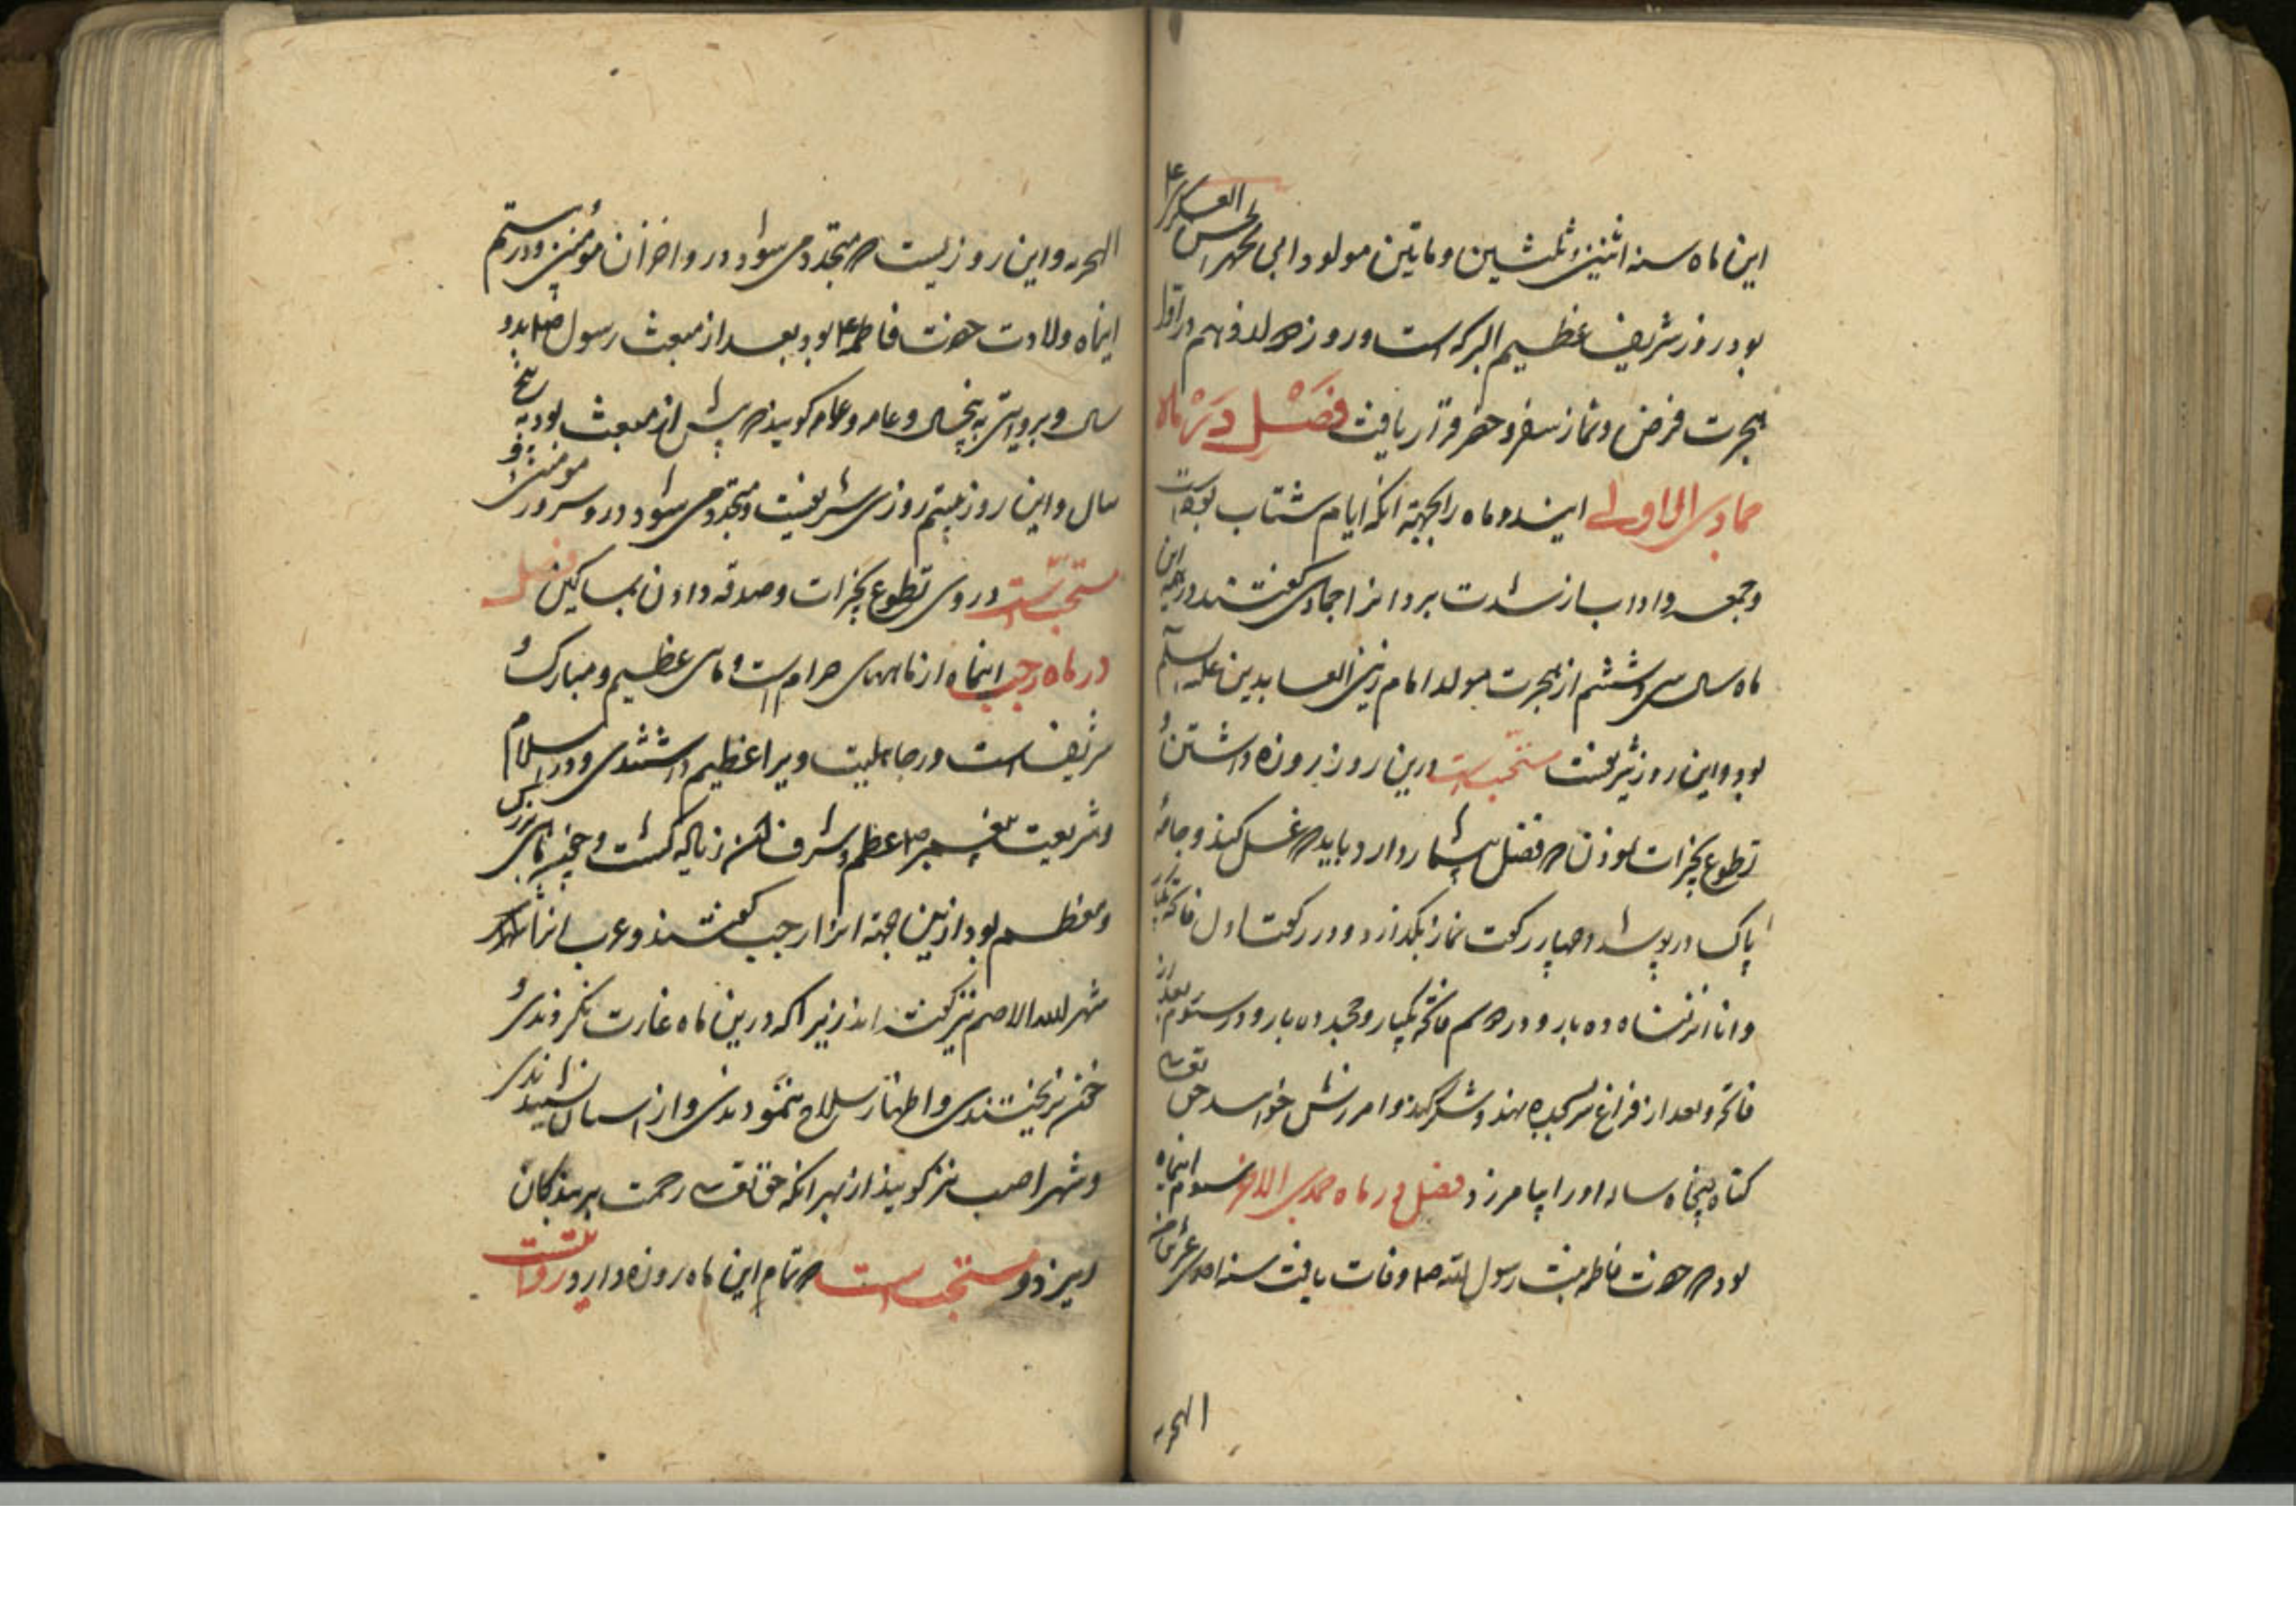 این ماه سنه اثنین و ثلثین و ماتین مولود ابی محمد الحسن العسکری ع
بود روز شریف عظیم البرکه است و روز دوازدهم در اول
هجرت فرض و نماز سفر و حضر قرار یافت فصل در ماه
جمادی الاولی ایندو ماه را بجهته انکه ایام شتاب بوده است
و جمعه و اداب از شدت برد انرا جمادی گفتند در نیمه این
ماه سال سی و ششم از هجرت مولد امام زین العابدین علیه السلام
بود و این روز شریفست مستحب است درین روز روزه داشتن و
تطوع بخیرات نمودن که فضل بسیار دارد و باید که غسل کند و جامهٔ
پاک در پوشد و چهار رکعت نماز بگذارد و در رکعت اول فاتحه یکبار
و انا انزلناه ده بار و در دوم فاتحه یکبار و محمد ده بار و در سیوم
فاتحه و بعد از فراغ سر بسجده نهد و شکر کند و امرزش خواهد حق تعالی
گناه پنجاه ساله او را بیامرزد فصل در ماه جمدی الاخر سیوم اینماه
بود که حضرت فاطمه بنت رسول الله صلعم وفات یافت سنه احدی عشر من
الهجره
الهجره و این روزیست که متجدد می شود درو احزان مؤمنین و در بیستم
اینماه ولادت حضرت فاطمه ع بود بعد از مبعث رسول صلعم بدو
سال و بروایتی به پنج سال و عامه گویند که پیش از مبعث بود به پنج
سال و این روز بیستم روزی شریفست و متجدد می شود درو سرور مومنین و
مستحبست در وی تطوع بخیرات و صدقه دادن بمساکین فصل
در ماه رجب اینماه از ماههای حرام است و ماهی عظیم و مبارک و
شریف است و در جاهلیت ویرا عظیم داشتندی و در اسلام
و شریعت پیغمبر صلعم اعظم و اشرف از زیاله گشت و چون ماهی بزرگ
و معظم بود ازین جهته انرا رجب گفتند و عرب انرا
شهر الله الاصم نیز گفته اند زیرا که درین ماه غارت نکردندی و
خون نریختندی و اظهار سلاح ننمودندی و از اسبان نشنیدندی
و شهر اصب نیز گویند از بهر انکه حق تعالی رحمت بر بندگان
میریزد و مستحب است که تمام این ماه روزه دارد روایتست